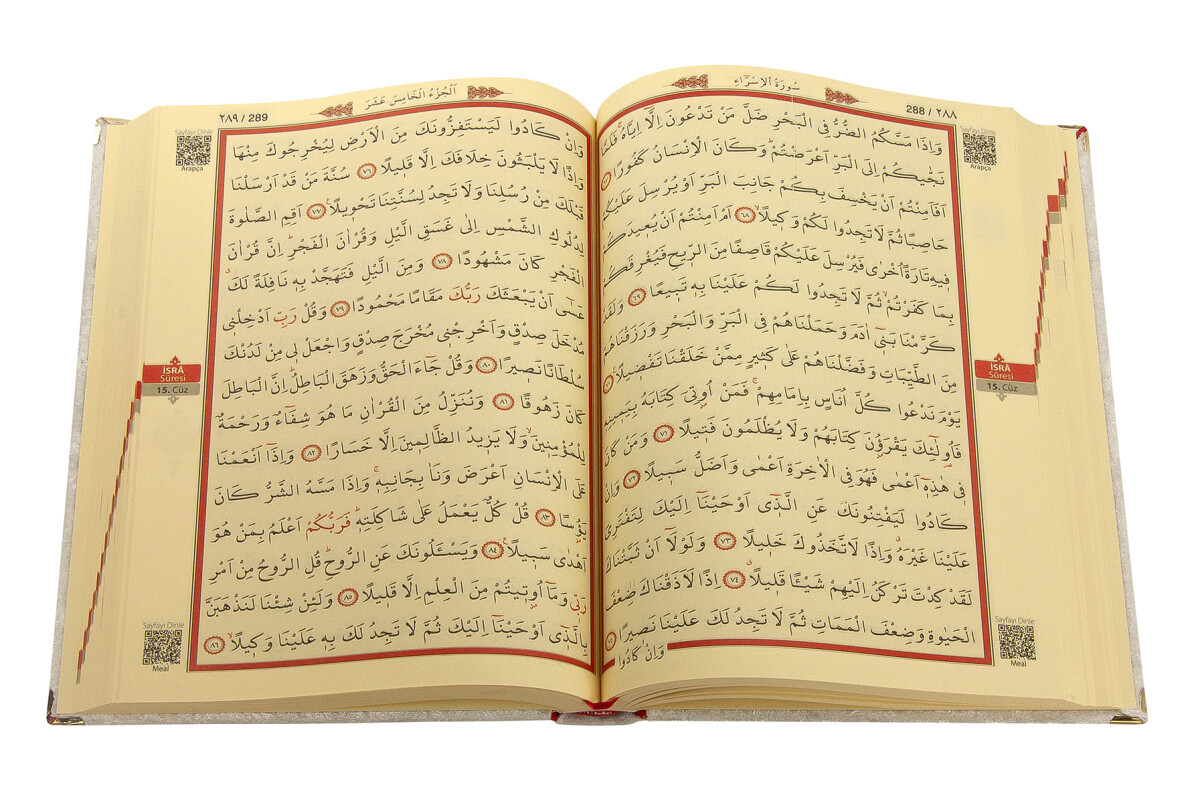 سُورَةُ الْاِسْرَٓاءِ
288 / ٢٨٨
وَاِذَا مَسَّكُمُ الضُّرُّ فِي الْبَحْرِ ضَلَّ مَنْ تَدْعُونَ اِلَّٓا اِيَّاهُۚ فَلَمَّا
نَجّٰيكُمْ اِلَى الْبَرِّ اَعْرَضْتُمْۜ وَكَانَ الْاِنْسَانُ كَفُورًا ﴿٦٧﴾
اَفَاَمِنْتُمْ اَنْ يَخْسِفَ بِكُمْ جَانِبَ الْبَرِّ اَوْ يُرْسِلَ عَلَيْكُمْ
حَاصِبًا ثُمَّ لَا تَجِدُوا لَكُمْ وَك۪يلًاۙ ﴿٦٨﴾ اَمْ اَمِنْتُمْ اَنْ يُع۪يدَكُمْ
ف۪يهِ تَارَةً اُخْرٰى فَيُرْسِلَ عَلَيْكُمْ قَاصِفًا مِنَ الرّ۪يحِ فَيُغْرِقَكُمْ
بِمَا كَفَرْتُمْۙ ثُمَّ لَا تَجِدُوا لَكُمْ عَلَيْنَا بِه۪ تَب۪يعًا ﴿٦٩﴾ وَلَقَدْ
كَرَّمْنَا بَن۪ٓي اٰدَمَ وَحَمَلْنَاهُمْ فِي الْبَرِّ وَالْبَحْرِ وَرَزَقْنَاهُمْ
مِنَ الطَّيِّبَاتِ وَفَضَّلْنَاهُمْ عَلٰى كَث۪يرٍ مِمَّنْ خَلَقْنَا تَفْض۪يلًا۟ ﴿٧٠﴾
يَوْمَ نَدْعُوا كُلَّ اُنَاسٍ بِاِمَامِهِمْۚ فَمَنْ اُو۫تِيَ كِتَابَهُ بِيَم۪ينِه۪
فَاُو۬لٰٓئِكَ يَقْرَؤُ۫نَ كِتَابَهُمْ وَلَا يُظْلَمُونَ فَت۪يلًا ﴿٧١﴾ وَمَنْ كَانَ
ف۪ي هٰذِه۪ٓ اَعْمٰى فَهُوَ فِي الْاٰخِرَةِ اَعْمٰى وَاَضَلُّ سَب۪يلًا ﴿٧٢﴾ وَاِنْ
كَادُوا لَيَفْتِنُونَكَ عَنِ الَّذ۪ٓي اَوْحَيْنَٓا اِلَيْكَ لِتَفْتَرِيَ
عَلَيْنَا غَيْرَهُۗ وَاِذًا لَاتَّخَذُوكَ خَل۪يلًا ﴿٧٣﴾ وَلَوْلَٓا اَنْ ثَبَّتْنَاكَ
لَقَدْ كِدْتَ تَرْكَنُ اِلَيْهِمْ شَيْـًٔا قَل۪يلًاۗ ﴿٧٤﴾ اِذًا لَاَذَقْنَاكَ ضِعْفَ
الْحَيٰوةِ وَضِعْفَ الْمَمَاتِ ثُمَّ لَا تَجِدُ لَكَ عَلَيْنَا نَص۪يرًا ﴿٧٥﴾
وَاِنْ كَادُوا
Sayfayı Dinle
Arapça
İSRÂ
Sûresi
15. Cüz
Sayfayı Dinle
Meal
اَلْجُزْءُ الْخَامِسَ عَشَرَ
٢٨٩ / 289
وَاِنْ كَادُوا لَيَسْتَفِزُّونَكَ مِنَ الْاَرْضِ لِيُخْرِجُوكَ مِنْهَا
وَاِذًا لَا يَلْبَثُونَ خِلَافَكَ اِلَّا قَل۪يلًا ﴿٧٦﴾ سُنَّةَ مَنْ قَدْ اَرْسَلْنَا
قَبْلَكَ مِنْ رُسُلِنَا وَلَا تَجِدُ لِسُنَّتِنَا تَحْو۪يلًا۟ ﴿٧٧﴾ اَقِمِ الصَّلٰوةَ
لِدُلُوكِ الشَّمْسِ اِلٰى غَسَقِ الَّيْلِ وَقُرْاٰنَ الْفَجْرِۜ اِنَّ قُرْاٰنَ
الْفَجْرِ كَانَ مَشْهُودًا ﴿٧٨﴾ وَمِنَ الَّيْلِ فَتَهَجَّدْ بِه۪ نَافِلَةً لَكَۗ
عَسٰٓى اَنْ يَبْعَثَكَ رَبُّكَ مَقَامًا مَحْمُودًا ﴿٧٩﴾ وَقُلْ رَبِّ اَدْخِلْن۪ي
مُدْخَلَ صِدْقٍ وَاَخْرِجْن۪ي مُخْرَجَ صِدْقٍ وَاجْعَلْ ل۪ي مِنْ لَدُنْكَ
سُلْطَانًا نَص۪يرًا ﴿٨٠﴾ وَقُلْ جَٓاءَ الْحَقُّ وَزَهَقَ الْبَاطِلُۜ اِنَّ الْبَاطِلَ
كَانَ زَهُوقًا ﴿٨١﴾ وَنُنَزِّلُ مِنَ الْقُرْاٰنِ مَا هُوَ شِفَٓاءٌ وَرَحْمَةٌ
لِلْمُؤْمِن۪ينَۙ وَلَا يَز۪يدُ الظَّالِم۪ينَ اِلَّا خَسَارًا ﴿٨٢﴾ وَاِذَٓا اَنْعَمْنَا
عَلَى الْاِنْسَانِ اَعْرَضَ وَنَاٰ بِجَانِبِه۪ۚ وَاِذَا مَسَّهُ الشَّرُّ كَانَ
يَؤُ۫سًا ﴿٨٣﴾ قُلْ كُلٌّ يَعْمَلُ عَلٰى شَاكِلَتِه۪ۜ فَرَبُّكُمْ اَعْلَمُ بِمَنْ هُوَ
اَهْدٰى سَب۪يلًا۟ ﴿٨٤﴾ وَيَسْـَٔلُونَكَ عَنِ الرُّوحِۜ قُلِ الرُّوحُ مِنْ اَمْرِ
رَبّ۪ي وَمَٓا اُو۫ت۪يتُمْ مِنَ الْعِلْمِ اِلَّا قَل۪يلًا ﴿٨٥﴾ وَلَئِنْ شِئْنَا لَنَذْهَبَنَّ
بِالَّذ۪ٓي اَوْحَيْنَٓا اِلَيْكَ ثُمَّ لَا تَجِدُ لَكَ بِه۪ عَلَيْنَا وَك۪يلًاۙ ﴿٨٦﴾
Sayfayı Dinle
Arapça
İSRÂ
Sûresi
15. Cüz
Sayfayı Dinle
Meal